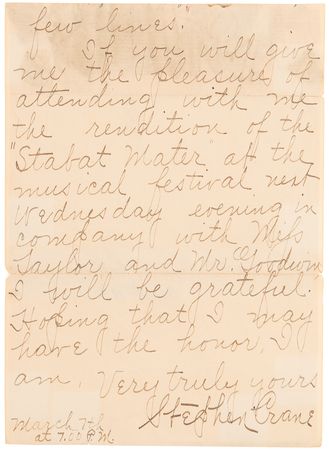 few lines."
If you will give
me the pleasure of
attending with me
the rendition of the
"Stabat Mater" at the
musical festival next
Wednesday evening in
company with Miss
Taylor and Mr. Goodwin
I will be grateful.
Hoping that I may
have the honor, I
am, Very truly yours
Stephen Crane
March 7th
at 7.00 P.M.